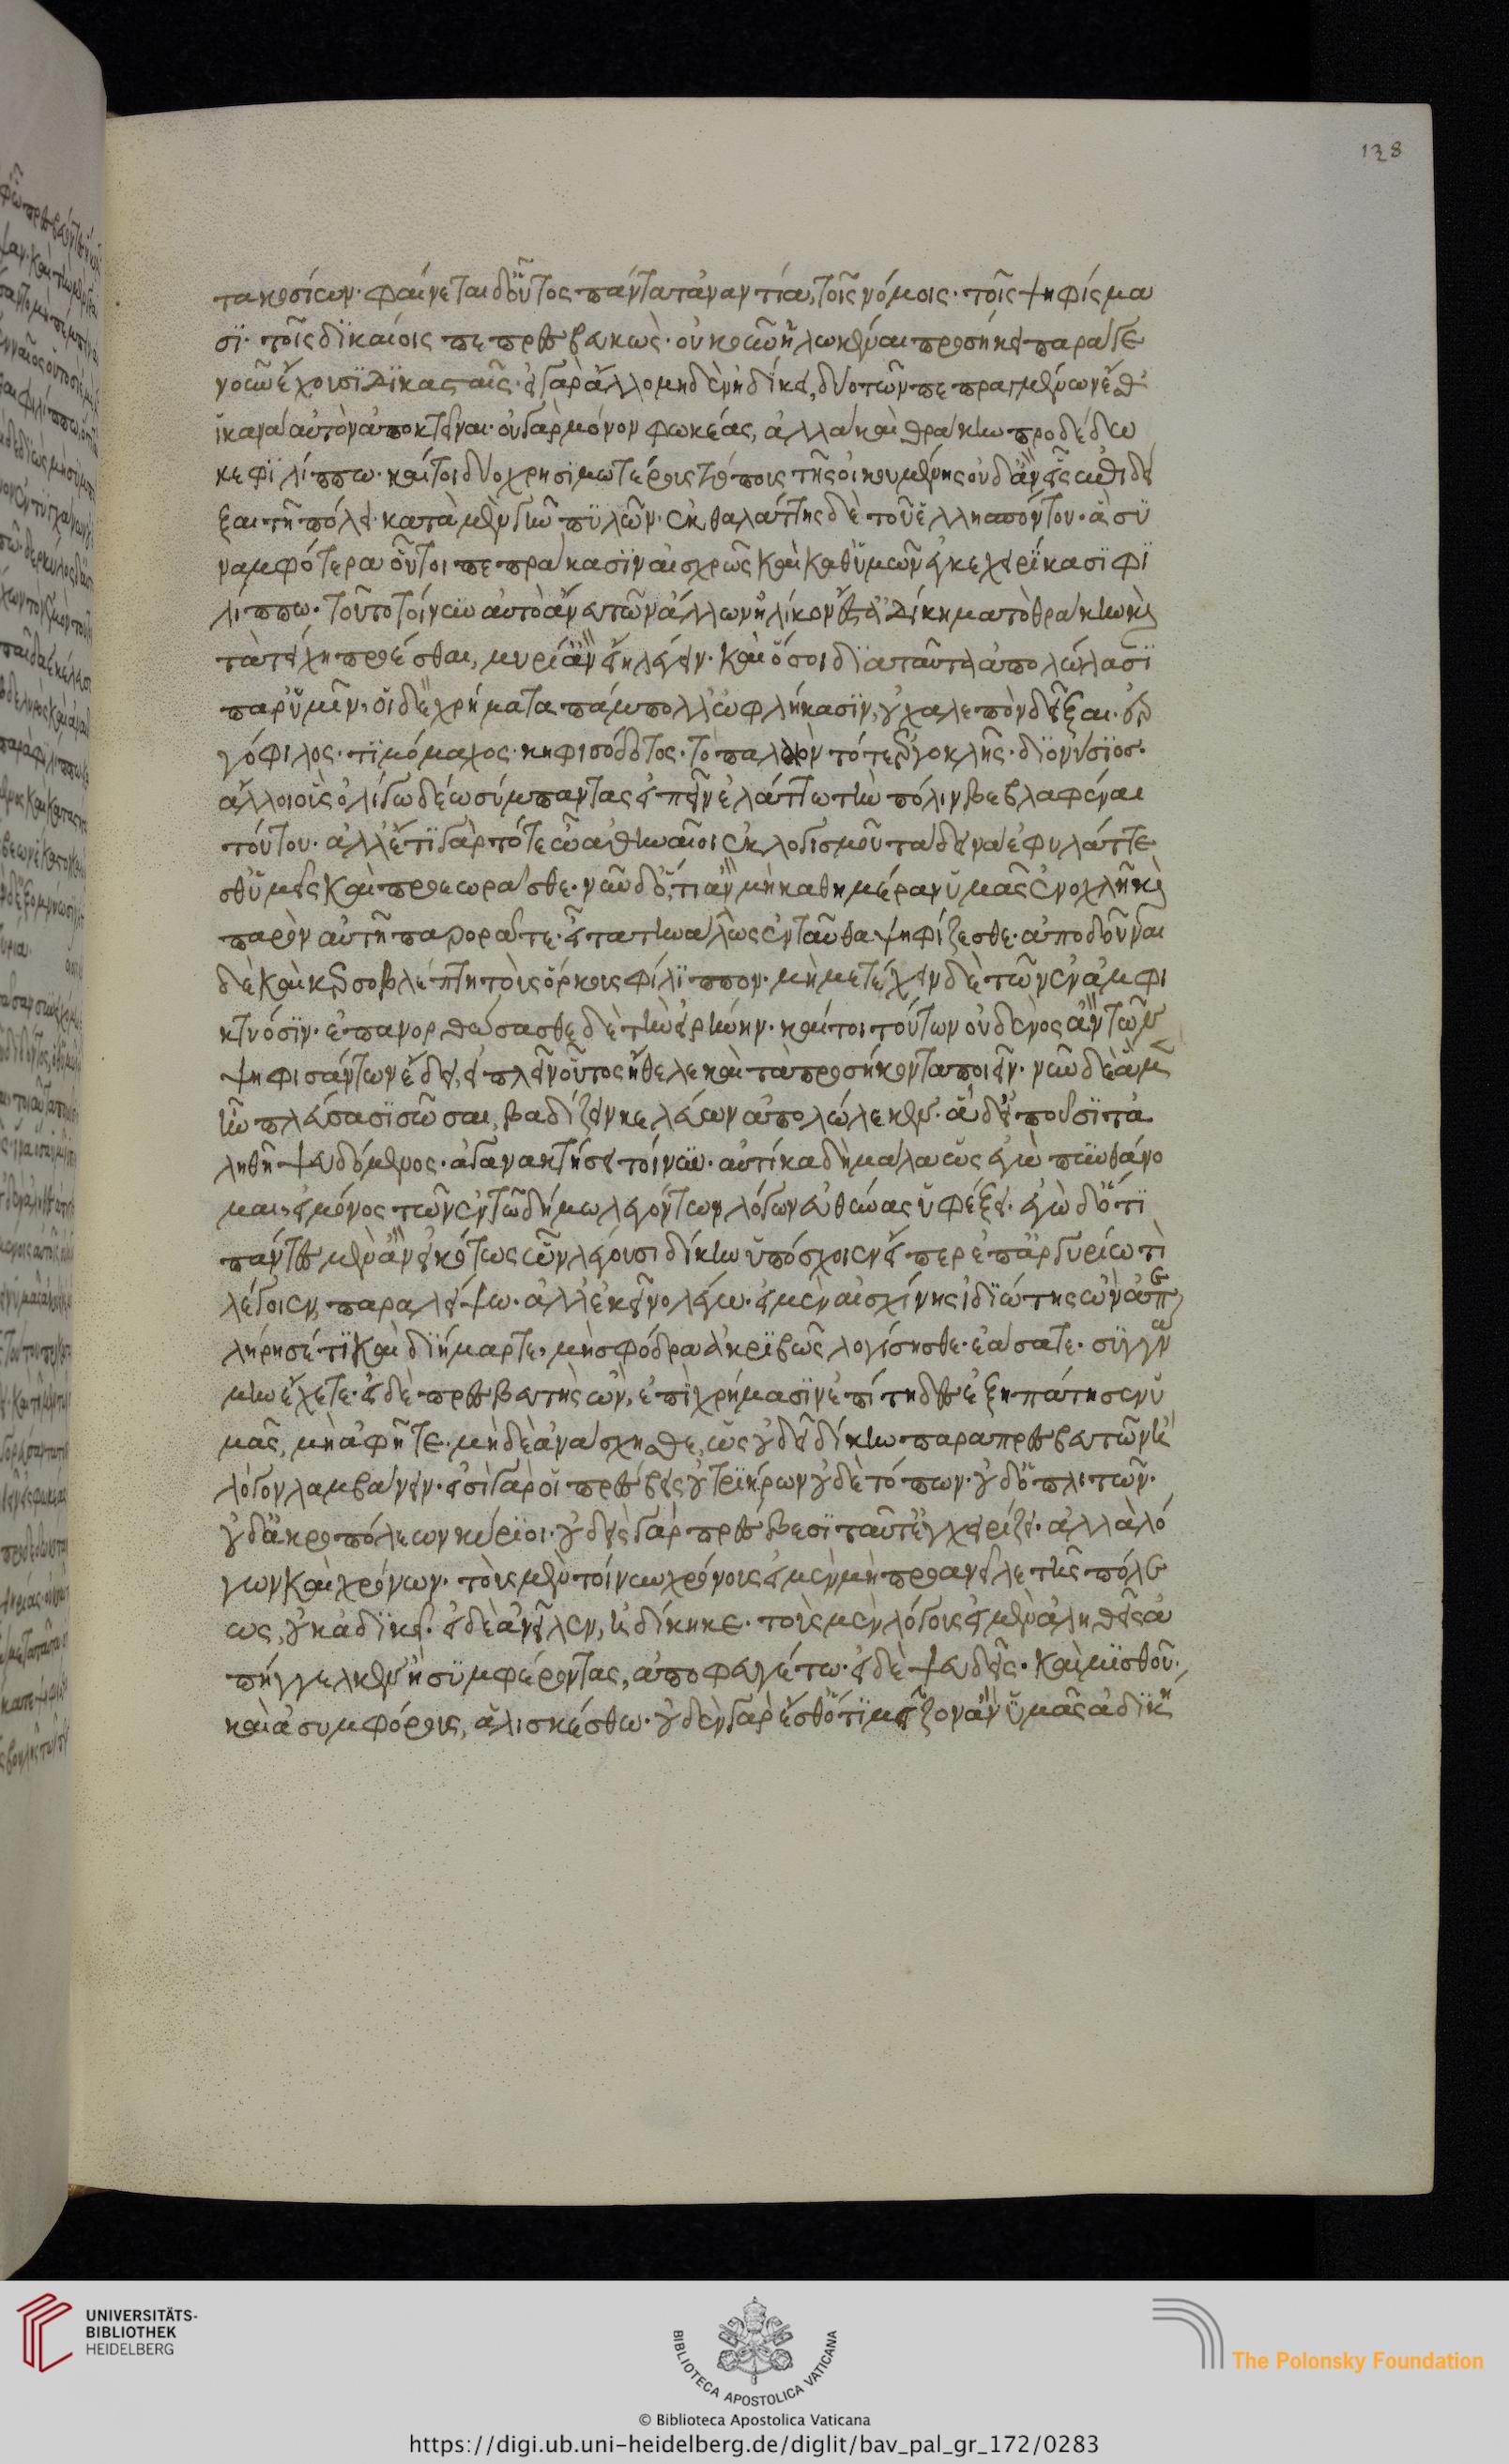 τακοσίων· φαίνεται δ' οὗτος πάντα τἀναντία, τοῖς νόμοις· τοῖς ψηφίσμα
σϊ· τοῖς δϊκαίοις πεπρεσβευκὼς· οὐκοῦν ἡλωκέναι προσήκει παρά γε
νοῦν ἔχουσϊ δϊκασταῖς· εἰ γὰρ ἄλλο μηδὲν ἠδίκει, δύο τῶν πεπραγμένων ἔσθ'
ἱκανὰ αὐτὸν ἀποκτεῖναι· οὐ γὰρ μόνον φωκέας, ἀλλὰ καὶ θράκην προδέδω
κε φϊλίππω· καίτοι δύο χρησϊμωτέρους τόπους τῆς οἰκουμένης οὐδ' ἂν εἷς ἐπιδεί
ξαι τῆ πόλει· κατὰ μὲν γῆν πϋλῶν· ἐκ θαλάττης δὲ τοῦ ἑλλησπόντου· ἃ σϋ
ναμφότερα οὗτοι πεπράκασϊν αἰσχρῶς καὶ καθ' ὑμῶν ἐγκεχειρίκασϊ φϊ
λιππω· τοῦτο τοίνυν αὐτὸ ἄνευ τῶν ἄλλων ἡλίκον ἔστ' ἀδίκημα τὸ θράκην καὶ
τὰ τείχη προέσθαι, μυρί' ἂν εἴη λέγειν· καὶ ὅσοι δϊὰ ταῦτ' ἀπολώλασϊ
παρ' ὑμῖν, οἱ δὲ χρήματα πάμπολλ' ὠφλήκασϊν, οὐ χαλεπὸν δεῖξαι· ἐρ
γόφιλος· τϊμόμαχος· κηφισόδοτος· τὸ παλαιὸν τότε ἐργοκλῆς· δϊονύσϊος·
ἄλλοι οὓς ὀλίγω δέω σύμπαντας εἰπεῖν ἐλάττω τὴν πόλιν βεβλαφέναι
τούτου· ἀλλ' ἔτϊ γὰρ τότε ὦ ἀθηναῖοι ἐκ λογισμοῦ τὰ δεινὰ ἐφυλάττε
σθ' ὑμεῖς καὶ προεωρᾶσθε· νῦν δ' ὅ,τι ἂν μὴ καθημέραν ὑμᾶς ἐνοχλῆ καὶ
παρὸν λυπῆ παρορᾶτε· εἶτα τὴν ἄλλως ἐνταῦθα ψηφίζεσθε· ἀποδοῦναι
δὲ καὶ κερσοβλέπτη τοὺς ὅρκους φίλϊππον· μὴ μετέχειν δὲ τῶν ἐν ἀμφι
κτυόσϊν· ἐπανορθώσασθε δὲ τὴν εἰρήνην· καίτοι τούτων οὐδενὸς ἂν τῶν
ψηφισάντων ἔδει, εἰ πλεῖν οὗτος ἤθελε καὶ τὰ προσήκοντα ποιεῖν· νῦν δὲ ἃ μὲν
ἦν πλεύσασϊ σῶσαι, βαδίζειν κελεύων ἀπολώλεκεν· ἃ δ' εἰποῦσϊ τἀ
ληθῆ ψευδόμενος· ἀγανακτήσει τοίνυν· αὐτίκα δὴ μάλα ὡς ἐγὼ πυνθάνο
μαι, εἰ μόνος τῶν ἐν τῶ δήμω λεγόντων λόγων εὐθύνας ὑφέξει· ἐγὼ δ' ὅτϊ
πάντες μὲν ἂν εἰκότως ὧν λέγουσι δίκην ὑπόσχοιεν εἴπερ ἐπ' ἀργυρίω τὶ
λέγοιεν, παραλείψω· ἀλλ' ἐκεῖνο λέγω· εἰ μὲν αἰσχίνης ἰδϊώτης ὢν ἀπε
λήρησέ τϊ καὶ δϊήμαρτε, μὴ σφόδρα ἀκρϊβῶς λογίσησθε· ἐάσατε· συγγνώ
μην ἔχετε· εἰ δὲ πρεσβευτὴς ὢν, ἐπὶ χρήμασϊν ἐπίτηδες ἐξηπάτησεν ὑ
μᾶς, μὴ ἀφῆτε· μὴ δὲ ἀνάσχησθε, ὡς οὐ δεῖ δίκην παραπρεσβευτῶν καὶ
λόγον λαμβάνειν· εἰσὶ γὰρ οἱ πρέσβεις οὐ τρϊήρων οὐδὲ τόπων· οὐδ' ὁπλιτῶν·
οὐδ' ἀκροπόλεων κύρϊοι· οὐδεὶς γὰρ πρέσβεσϊ ταῦτ' ἐγχειρίζει· ἀλλὰ λό
γων καὶ χρόνων· τοὺς μὲν τοίνυν χρόνους εἰ μὲν μὴ προανεῖλε τῆς πόλε
ως, οὐκ ἀδϊκεῖ· εἰ δὲ ἀνεῖλεν, ἠδίκηκε· τοὺς μὲν λόγους εἰ μὲν ἀληθεῖς ἀ
πήγγελκεν ἢ σϋμφέροντας, ἀποφευγέτω· εἰ δὲ ψευδεῖς· καὶ μϊσθοῦ·
καὶ ἀσυμφόρους, ἁλισκέσθω· οὐδὲν γὰρ ἔσθ' ὅτϊ μεῖζον ἂν ὑμᾶς ἀδϊκή
138
UNIVERSITÄTS-
BIBLIOTHEK
HEIDELBERG
BIBLIOTECA APOSTOLICA VATICANA
© Biblioteca Apostolica Vaticana
The Polonsky Foundation
https://digi.ub.uni-heidelberg.de/diglit/bav_pal_gr_172/0283